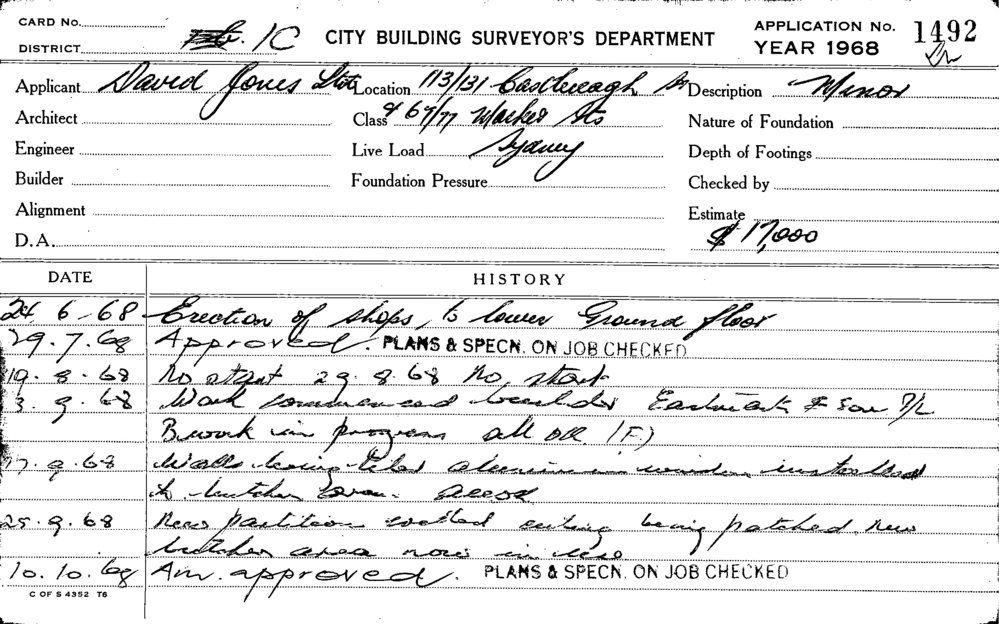 CARD No.
DISTRICT 1C
CITY BUILDING SURVEYOR'S DEPARTMENT
APPLICATION No. 1492
YEAR 1968
Applicant David Jones Location 113/131 Castlereagh St Description Minor
Architect Class & 67/77 Market Sts Nature of Foundation
Engineer Live Load Sydney Depth of Footings
Builder Foundation Pressure Checked by
Alignment Estimate
D.A. $ 17,000
DATE HISTORY
24. 6 - 68 Erection of shops, to lower Ground floor
29. 7. 68 Approved. PLANS & SPECN. ON JOB CHECKED
19. 8. 68 No start 29. 8. 68 No start
3. 9. 68 Work commenced & Son P/L
B. work in progress all OK (F.)
17. 9. 68 Walls being tiled aluminium window installed
to butcher
25. 9. 68 New partition ceiling being patched new
butcher area now in use
10. 10. 68 Am. approved. PLANS & SPECN. ON JOB CHECKED
C OF S 4352 T6